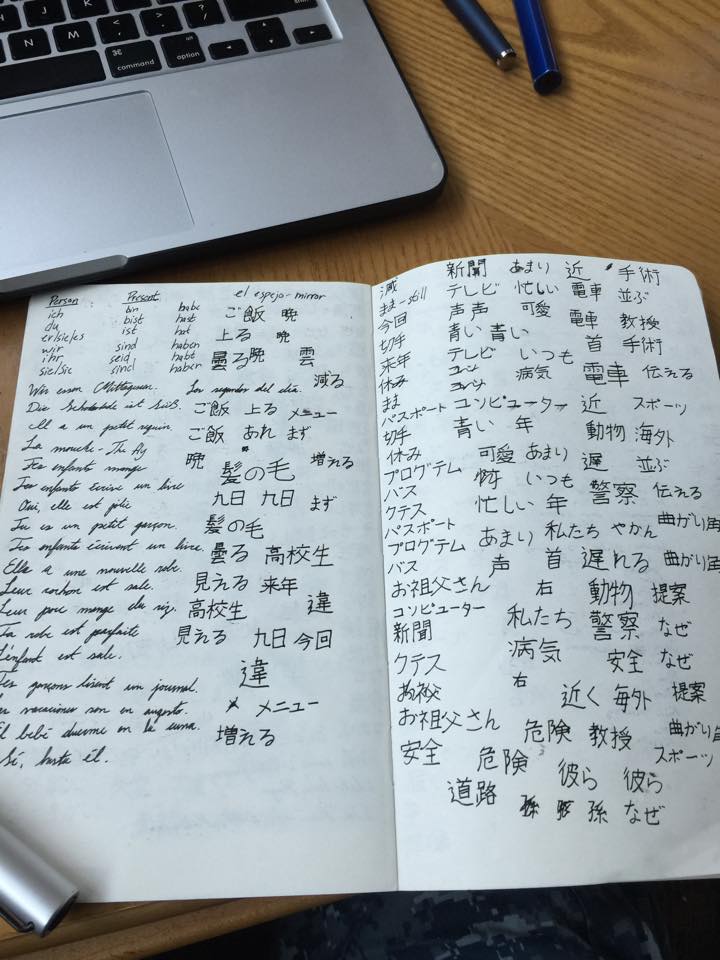 command
alt
option
Person Present
ich bin habe el espejo - mirror
du bist hast ご飯 晩
er/sie/es ist hat 上る 晩
wir sind haben
ihr seid habt 曇る 晩 雲
sie/Sie sind haben
Wir essen Mittagessen. Los segundos del día. 減る
Die Schokolade ist süß. ご飯 上る メニュー
Il a un petit requin. ご飯 あれ まず
La mouche - The fly 晩 増える
Tes enfants mange 髪の毛
Tes enfants écrive un livre
Oui, elle est jolie 九日 九日 まず
Tu es un petit garçon. 髪の毛
Tes enfants écrivent un livre. 曇る 高校生
Elle a une nouvelle robe. 見える 来年
Leur cochon est sale. 高校生 違
Leur porc mange du riz.
Ta robe est parfaite 見える 九日 今回
L'enfant est sale. 違
Tes garçons lisent un journal. メニュー
vacaciones son en augosto. 増える
El bebé duerme en la cuna.
Sé, hasta él.
減 新聞 あまり 近 手術
まま - still テレビ 忙しい 電車 並ぶ
今回 声 声 可愛 電車 教授
切手 青い 青い 首 手術
来年 テレビ いつも
休み 病気 電車 伝える
まま
パスポート コンピューター 近 スポーツ
切手 青い 年 動物 海外
休み 可愛 あまり 遅 並ぶ
プログテム いつも 警察 伝える
バス
クテス 忙しい 年 曲がり角
パスポート あまり 私たち やかん
プログテム
バス 声 首 遅れる 曲がり角
お祖父さん 右 動物 提案
コンピューター 私たち 警察 なぜ
新聞
クテス 病気 安全 なぜ
お祖父 右 近く 海外 提案
お祖父さん 危険 教授 曲がり角
安全 危険 彼ら 彼ら スポーツ
道路 孫 孫 孫 なぜ